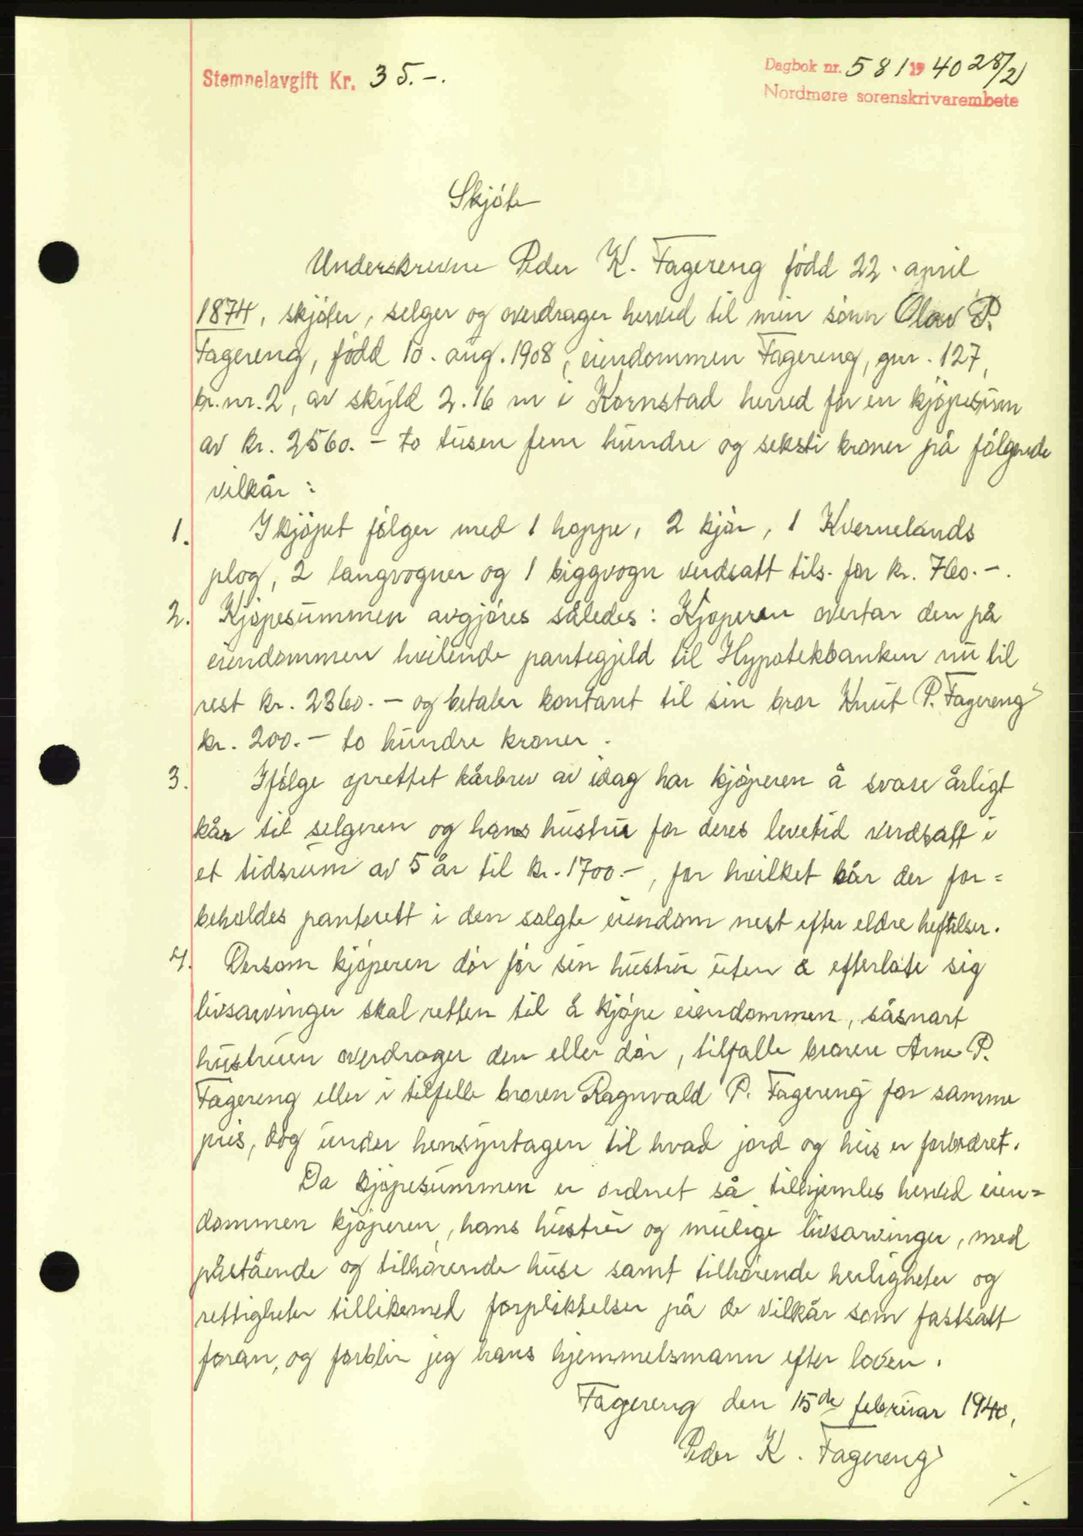 Stemnelavgift Kr. 35.-.
Dagbok nr. 581 1940 28/2
Nordmøre sorenskrivarembete
Skjöte
Underskrevne Peder K. Fagereng född 22. april
1874, skjöter, selger og overdrager herved til min sönn Olav P.
Fagereng, född 10. aug. 1908, eiendommen Fagereng, gnr. 127,
br.nr. 2, av skyld 2.16 m i Kornstad herred for en kjöpesum
av kr. 2560.- to tusen fem hundre og seksti kroner på fölgende
vilkår:
1. I kjöpet fölger med 1 hoppe, 2 kjör, 1 Kvernelands
plog, 2 langvogner og 1 biggvogn verdsatt tils. for kr. 760.-.
2. Kjöpesummen avgjöres således: Kjöperen overtar den på
eiendommen hvilende pantegjeld til Hypotekbanken nu til
rest kr. 2360.- og betaler kontant til sin bror Knut P. Fagereng
kr. 200.- to hundre kroner.
3. Ifölge oprettet kårbrev av idag har kjöperen å svare årligt
kår til selgeren og hans hustru for deres levetid verdsatt i
et tidsrum av 5 år til kr. 1700.-, for hvilket kår der for=
beholdes panterett i den solgte eiendom nest efter eldre heftelser.
4. Dersom kjöperen dör för sin hustru uten å efterlate sig
livsarvinger skal retten til å kjöpe eiendommen, såsnart
hustruen overdrager den eller dör, tilfalle broren Arne P.
Fagereng eller i tilfelle broren Ragnvald P. Fagereng for samme
pris, dog under hensyntagen til hvad jord og hus er forbedret.
Da kjöpesummen er ordnet så tilhjemles herved eien=
dommen kjöperen, hans hustru og mulige livsarvinger, med
påstående og tilhörende huse samt tilhörende herligheter og
rettigheter tillikemed forpliktelser på de vilkår som fastsatt
foran, og forblir jeg hans hjemmelsmann efter loven.
Fagereng den 15de februar 1940.
Peder K. Fagereng
./.